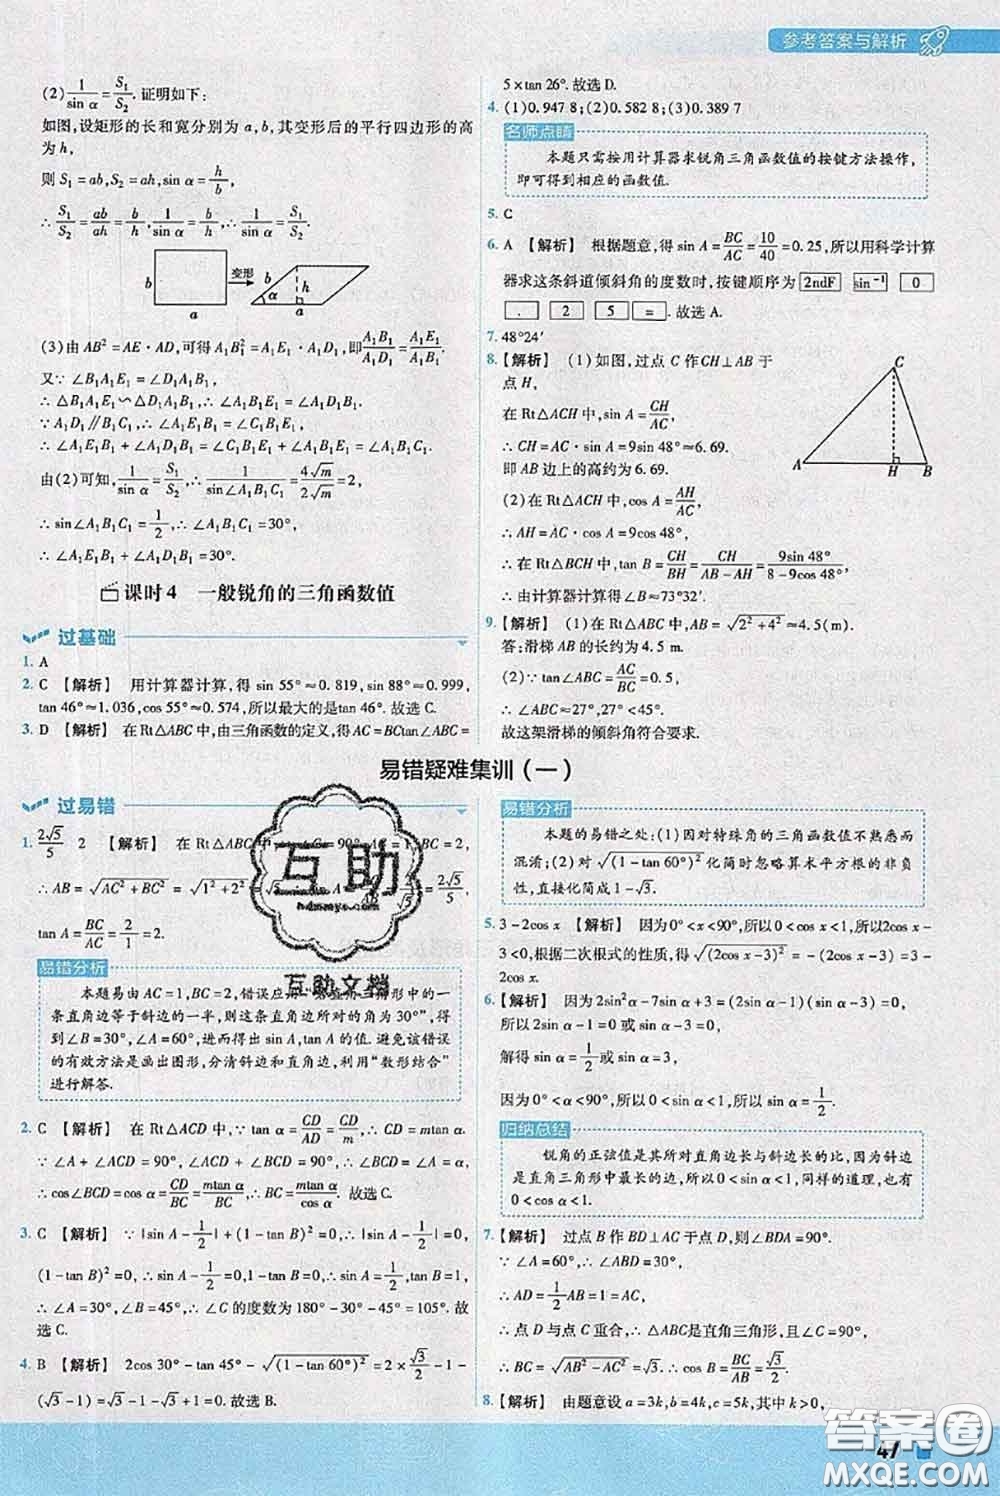 参考答案与解析
(2) 1/sin α = S₁/S₂. 证明如下:
如图,设矩形的长和宽分别为 a,b,其变形后的平行四边形的高
为 h,
则 S₁ = ab,S₂ = ah,sin α = h/b,
∴ S₁/S₂ = ab/ah = b/h, 1/sin α = b/h, ∴ 1/sin α = S₁/S₂.
b a 变形 b h α a
(3)由 AB² = AE · AD,可得 A₁B₁² = A₁E₁ · A₁D₁,即 A₁B₁/A₁D₁ = A₁E₁/A₁B₁.
又∵ ∠B₁A₁E₁ = ∠D₁A₁B₁,
∴ △B₁A₁E₁∽△D₁A₁B₁, ∴ ∠A₁B₁E₁ = ∠A₁D₁B₁.
∵ A₁D₁∥B₁C₁, ∴ ∠A₁E₁B₁ = ∠C₁B₁E₁,
∴ ∠A₁E₁B₁ + ∠A₁D₁B₁ = ∠C₁B₁E₁ + ∠A₁B₁E₁ = ∠A₁B₁C₁.
由(2)可知, 1/sin α = S₁/S₂, ∴ 1/sin∠A₁B₁C₁ = 4√m/2√m = 2,
∴ sin∠A₁B₁C₁ = 1/2, ∴ ∠A₁B₁C₁ = 30°,
∴ ∠A₁E₁B₁ + ∠A₁D₁B₁ = 30°.
课时4 一般锐角的三角函数值
过基础
1. A
2. C 【解析】 用计算器计算,得 sin 55°≈0. 819, sin 88°≈0. 999,
tan 46°≈1. 036,cos 55°≈0. 574,所以最大的是tan 46°. 故选 C.
3. D 【解析】 在 Rt△ABC 中,由三角函数的定义,得 AC = BCtan∠ABC =
5 × tan 26°. 故选 D.
4. (1)0. 947 8;(2)0. 582 8;(3)0. 389 7
名师点睛
本题只需按用计算器求锐角三角函数值的按键方法操作,
即可得到相应的函数值.
5. C
6. A 【解析】 根据题意,得 sin A = BC/AC = 10/40 = 0. 25,所以用科学计算
器求这条斜道倾斜角的度数时,按键顺序为 2ndF sin⁻¹ 0
. 2 5 = . 故选 A.
7. 48°24′
8. 【解析】 (1)如图,过点 C 作 CH⊥AB 于
点 H,
在 Rt△ACH 中,sin A = CH/AC,
∴ CH = AC · sin A = 9sin 48°≈6. 69.
即 AB 边上的高约为 6. 69.
C A H B
(2)在 Rt△ACH 中,cos A = AH/AC,
∴ AH = AC · cos A = 9cos 48°,
∴ 在 Rt△BCH 中,tan B = CH/BH = CH/(AB - AH) = 9sin 48°/(8 - 9cos 48°),
∴ 由计算器计算得∠B≈73°32′.
9. 【解析】 (1)在 Rt△ABC 中,AB = √(2² + 4²)≈4. 5(m).
答:滑梯 AB 的长约为 4. 5 m.
(2)∵ tan∠ABC = AC/BC = 0. 5,
∴ ∠ABC≈27°,27° < 45°.
故这架滑梯的倾斜角符合要求.
易错疑难集训(一)
过易错
1. 2√5/5 2 【解析】 在 Rt△ABC 中, ∠C = 90°, AC = 1, BC = 2,
∴ AB = √(AC² + BC²) = √(1² + 2²) = √5, ∴ sin A = BC/AB = 2/√5 = 2√5/5,
tan A = BC/AC = 2/1 = 2.
易错分析
本题易由 AC = 1,BC = 2,错误应用“若直角三角形中的一
条直角边等于斜边的一半,则这条直角边所对的角为 30°”,得
到∠B = 30°,∠A = 60°,进而得出 sin A,tan A 的值. 避免该错误
的有效方法是画出图形,分清斜边和直角边,利用“数形结合”
进行解答.
2. C 【解析】 在 Rt△ACD 中,∵ tan α = CD/AD = CD/m, ∴ CD = mtan α.
∵ ∠A + ∠ACD = 90°,∠ACD + ∠BCD = 90°, ∴ ∠BCD = ∠A = α,
∴ cos∠BCD = CD/BC = mtan α/BC, ∴ BC = mtan α/cos α. 故选 C.
3. C 【解析】 ∵ |sin A - 1/2| + (1 - tan B)² = 0, ∴ |sin A - 1/2| = 0,
(1 - tan B)² = 0, ∴ sin A - 1/2 = 0,1 - tan B = 0, ∴ sin A = 1/2,tan B = 1,
∴ ∠A = 30°,∠B = 45°, ∴ ∠C 的度数为 180° - 30° - 45° = 105°. 故
选 C.
4. B 【解析】 2cos 30° - tan 45° - √((1 - tan 60°)²) = 2 × √3/2 - 1 -
(√3 - 1) = √3 - 1 - √3 + 1 = 0. 故选 B.
易错分析
本题的易错之处:(1)因对特殊角的三角函数值不熟悉而
混淆;(2)对 √((1 - tan 60°)²) 化简时忽略算术平方根的非负
性,直接化简成 1 - √3.
5. 3 - 2cos x 【解析】 因为 0° < x < 90°,所以 0 < cos x < 1,所以 2cos x
- 3 < 0,根据二次根式的性质,得 √((2cos x - 3)²) = - (2cos x - 3) = 3 - 2cos x.
6. 【解析】 因为 2sin²α - 7sin α + 3 = (2sin α - 1)(sin α - 3) = 0,
所以 2sin α - 1 = 0 或 sin α - 3 = 0,
解得 sin α = 1/2 或 sin α = 3.
因为 0° < α < 90°,所以 0 < sin α < 1,所以 sin α = 1/2.
归纳总结
锐角的正弦值是其所对直角边长与斜边长的比,因为斜边
是直角三角形中最长的边,所以 0 < sin α < 1,同样的道理,也有
0 < cos α < 1.
7. 【解析】 过点 B 作 BD⊥AC 于点 D,则∠BDA = 90°.
∵ ∠A = 60°, ∴ ∠ABD = 30°,
∴ AD = 1/2 AB = 1 = AC,
∴ 点 D 与点 C 重合, ∴ △ABC 是直角三角形,∠C = 90°,
∴ BC = √(AB² - AC²) = √3, ∴ cos B = BC/AB = √3/2.
8. 【解析】 由题意设 a = 3k,b = 4k,c = 5k,其中 k > 0,
47
互助
hdzuoye.com
互助文档
答案圈
MXQE.COM